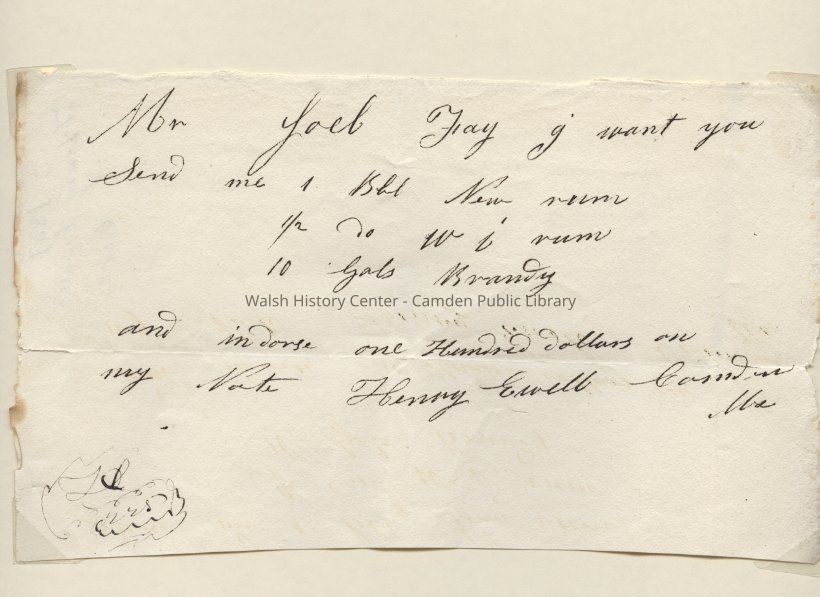 Mr Joel Fay I want you
Send me 1 Bbl New rum
1/2 do W I rum
10 Gals Brandy
Walsh History Center - Camden Public Library
and indorse one Hundred dollars on
my Note Henry Ewell Camden
Me